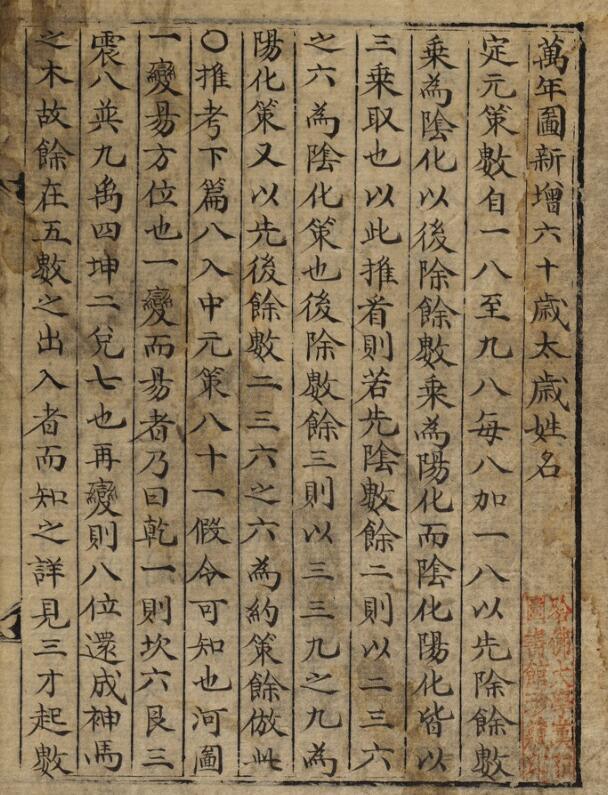 萬年圖新增六十歲太歲姓名
定元策數自一八至九八每八加一八以先除餘數
乘為陰化以後除餘數乘為陽化而陰化陽化皆以
三乘取也以此推者則若先陰數餘二則以二三六
之六為陰化策也後除數餘三則以三三九之九為
陽化策又以先後餘數二三六之六為約策餘倣此
〇推考下篇八入中元策八十一假令可知也河圖
一變易方位也一變而易者乃曰乾一則坎六艮三
震八巽九离四坤二兌七也再變則八位還成神馬
之木故餘在五數之出入者而知之詳見三才起數
哈佛大學漢和
圖書館珍藏印